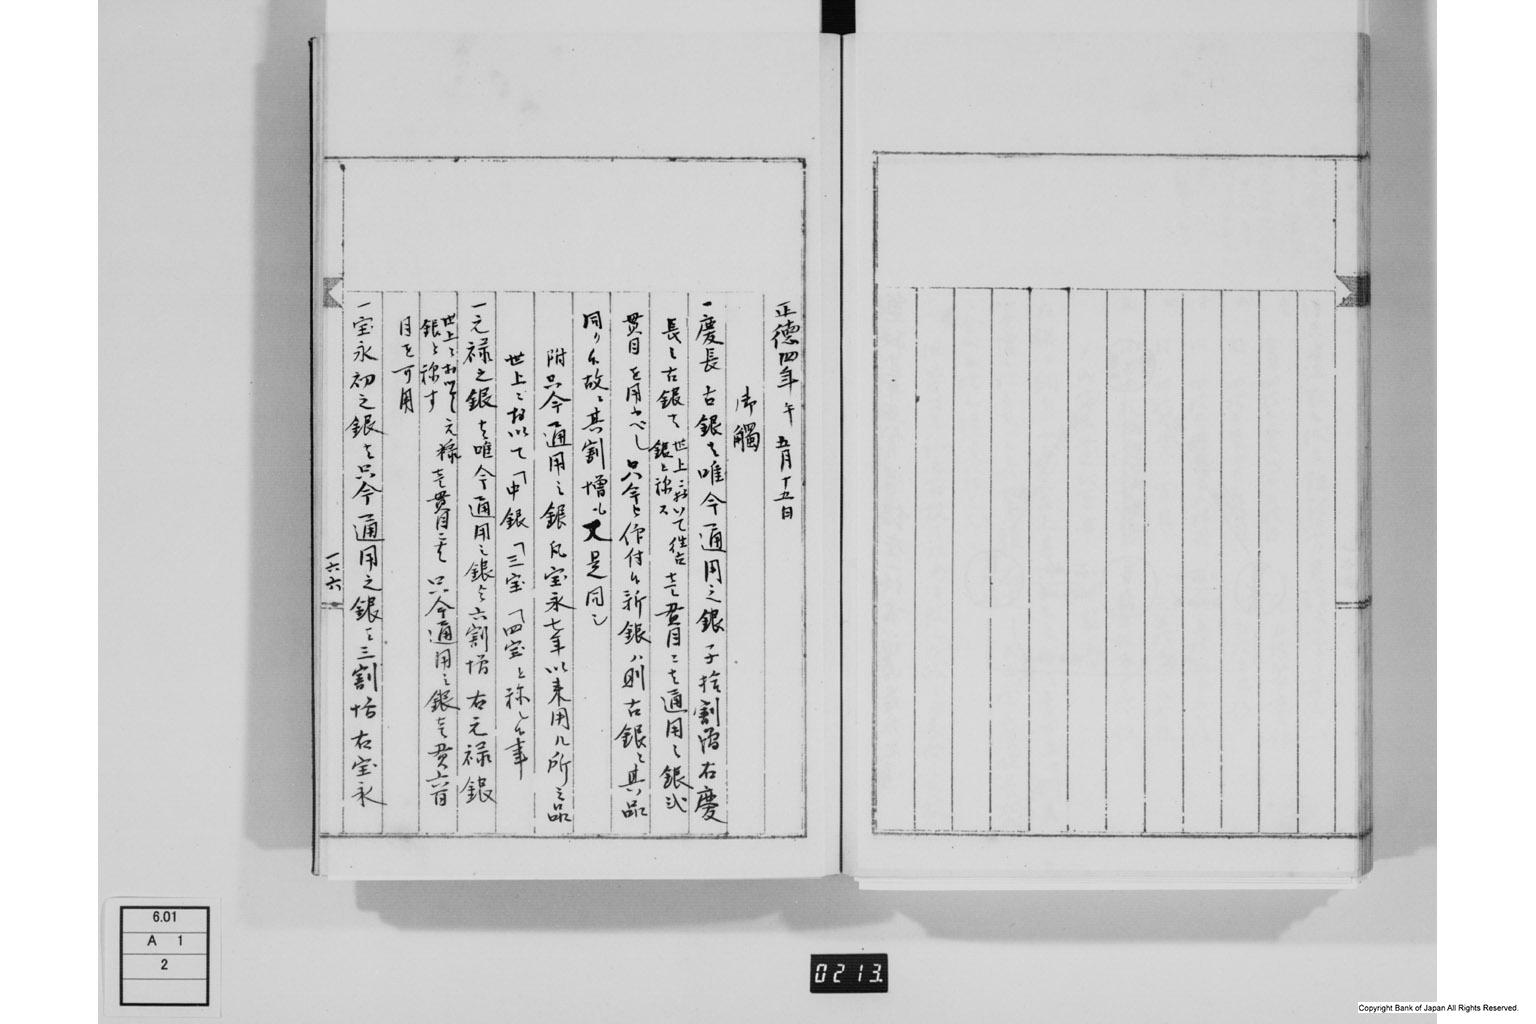 正徳四年 午 五月十五日
御觸
一慶長古銀ハ唯今通用之銀子拾割増右慶
長之古銀ハ世上ニおいて往古銀と称ス 壱貫目ニハ通用之銀弐
貫目を用へし只今被仰付候新銀ハ則古銀と其品
同り候故ニ其割増も又是同し
附只今通用之銀凡宝永七年以来用ル所之品
世上ニおいて「中銀「三宝「四宝と称し候事
一元禄之銀ハ唯今通用之銀ニ六割増右元禄銀
世上ニおいて元禄銀と称す 壱貫目ニハ只今通用之銀壱貫六百
目を可用
一宝永初之銀ハ只今通用之銀ニ三割増右宝永
一六六
6.01
A 1
2
0213.
Copyright Bank of Japan All Rights Reserved.